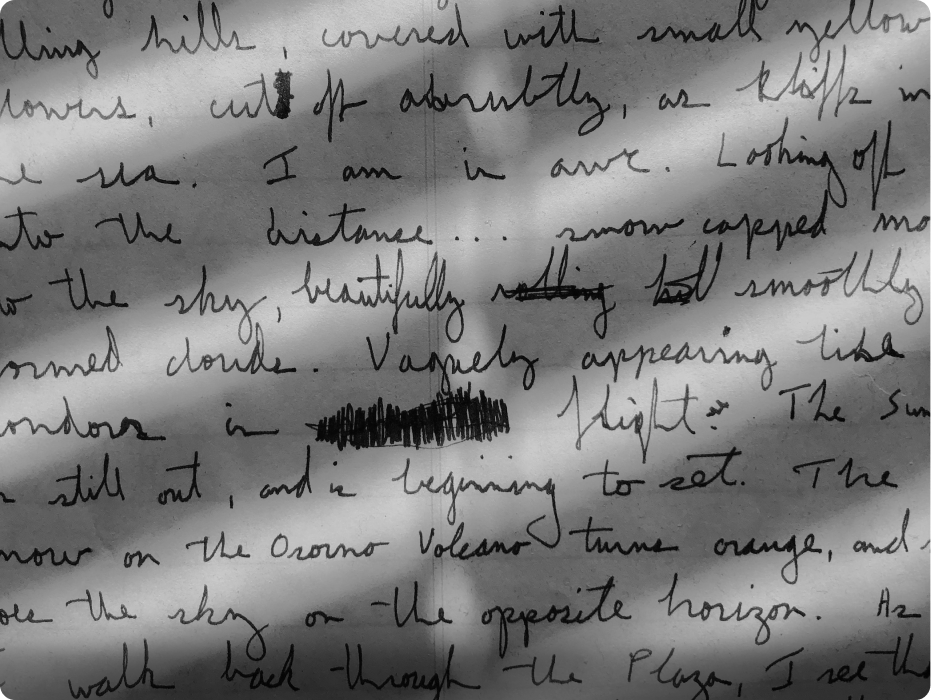 lling hills, covered with small yellow
lowers, cut off abrubtly, as kliffs in
he sea. I am in awe. Looking off
nto the distance.... snow capped mo
w the sky, beautifully rolling but smoothly
ormed clouds. Vaguely appearing like
ondors in flight. The Sun
s still out, and is beginning to set. The
now on the Osorno Volcano turns orange, and s
oes the sky on the opposite horizon. As
I walk back through the Plaza, I see th